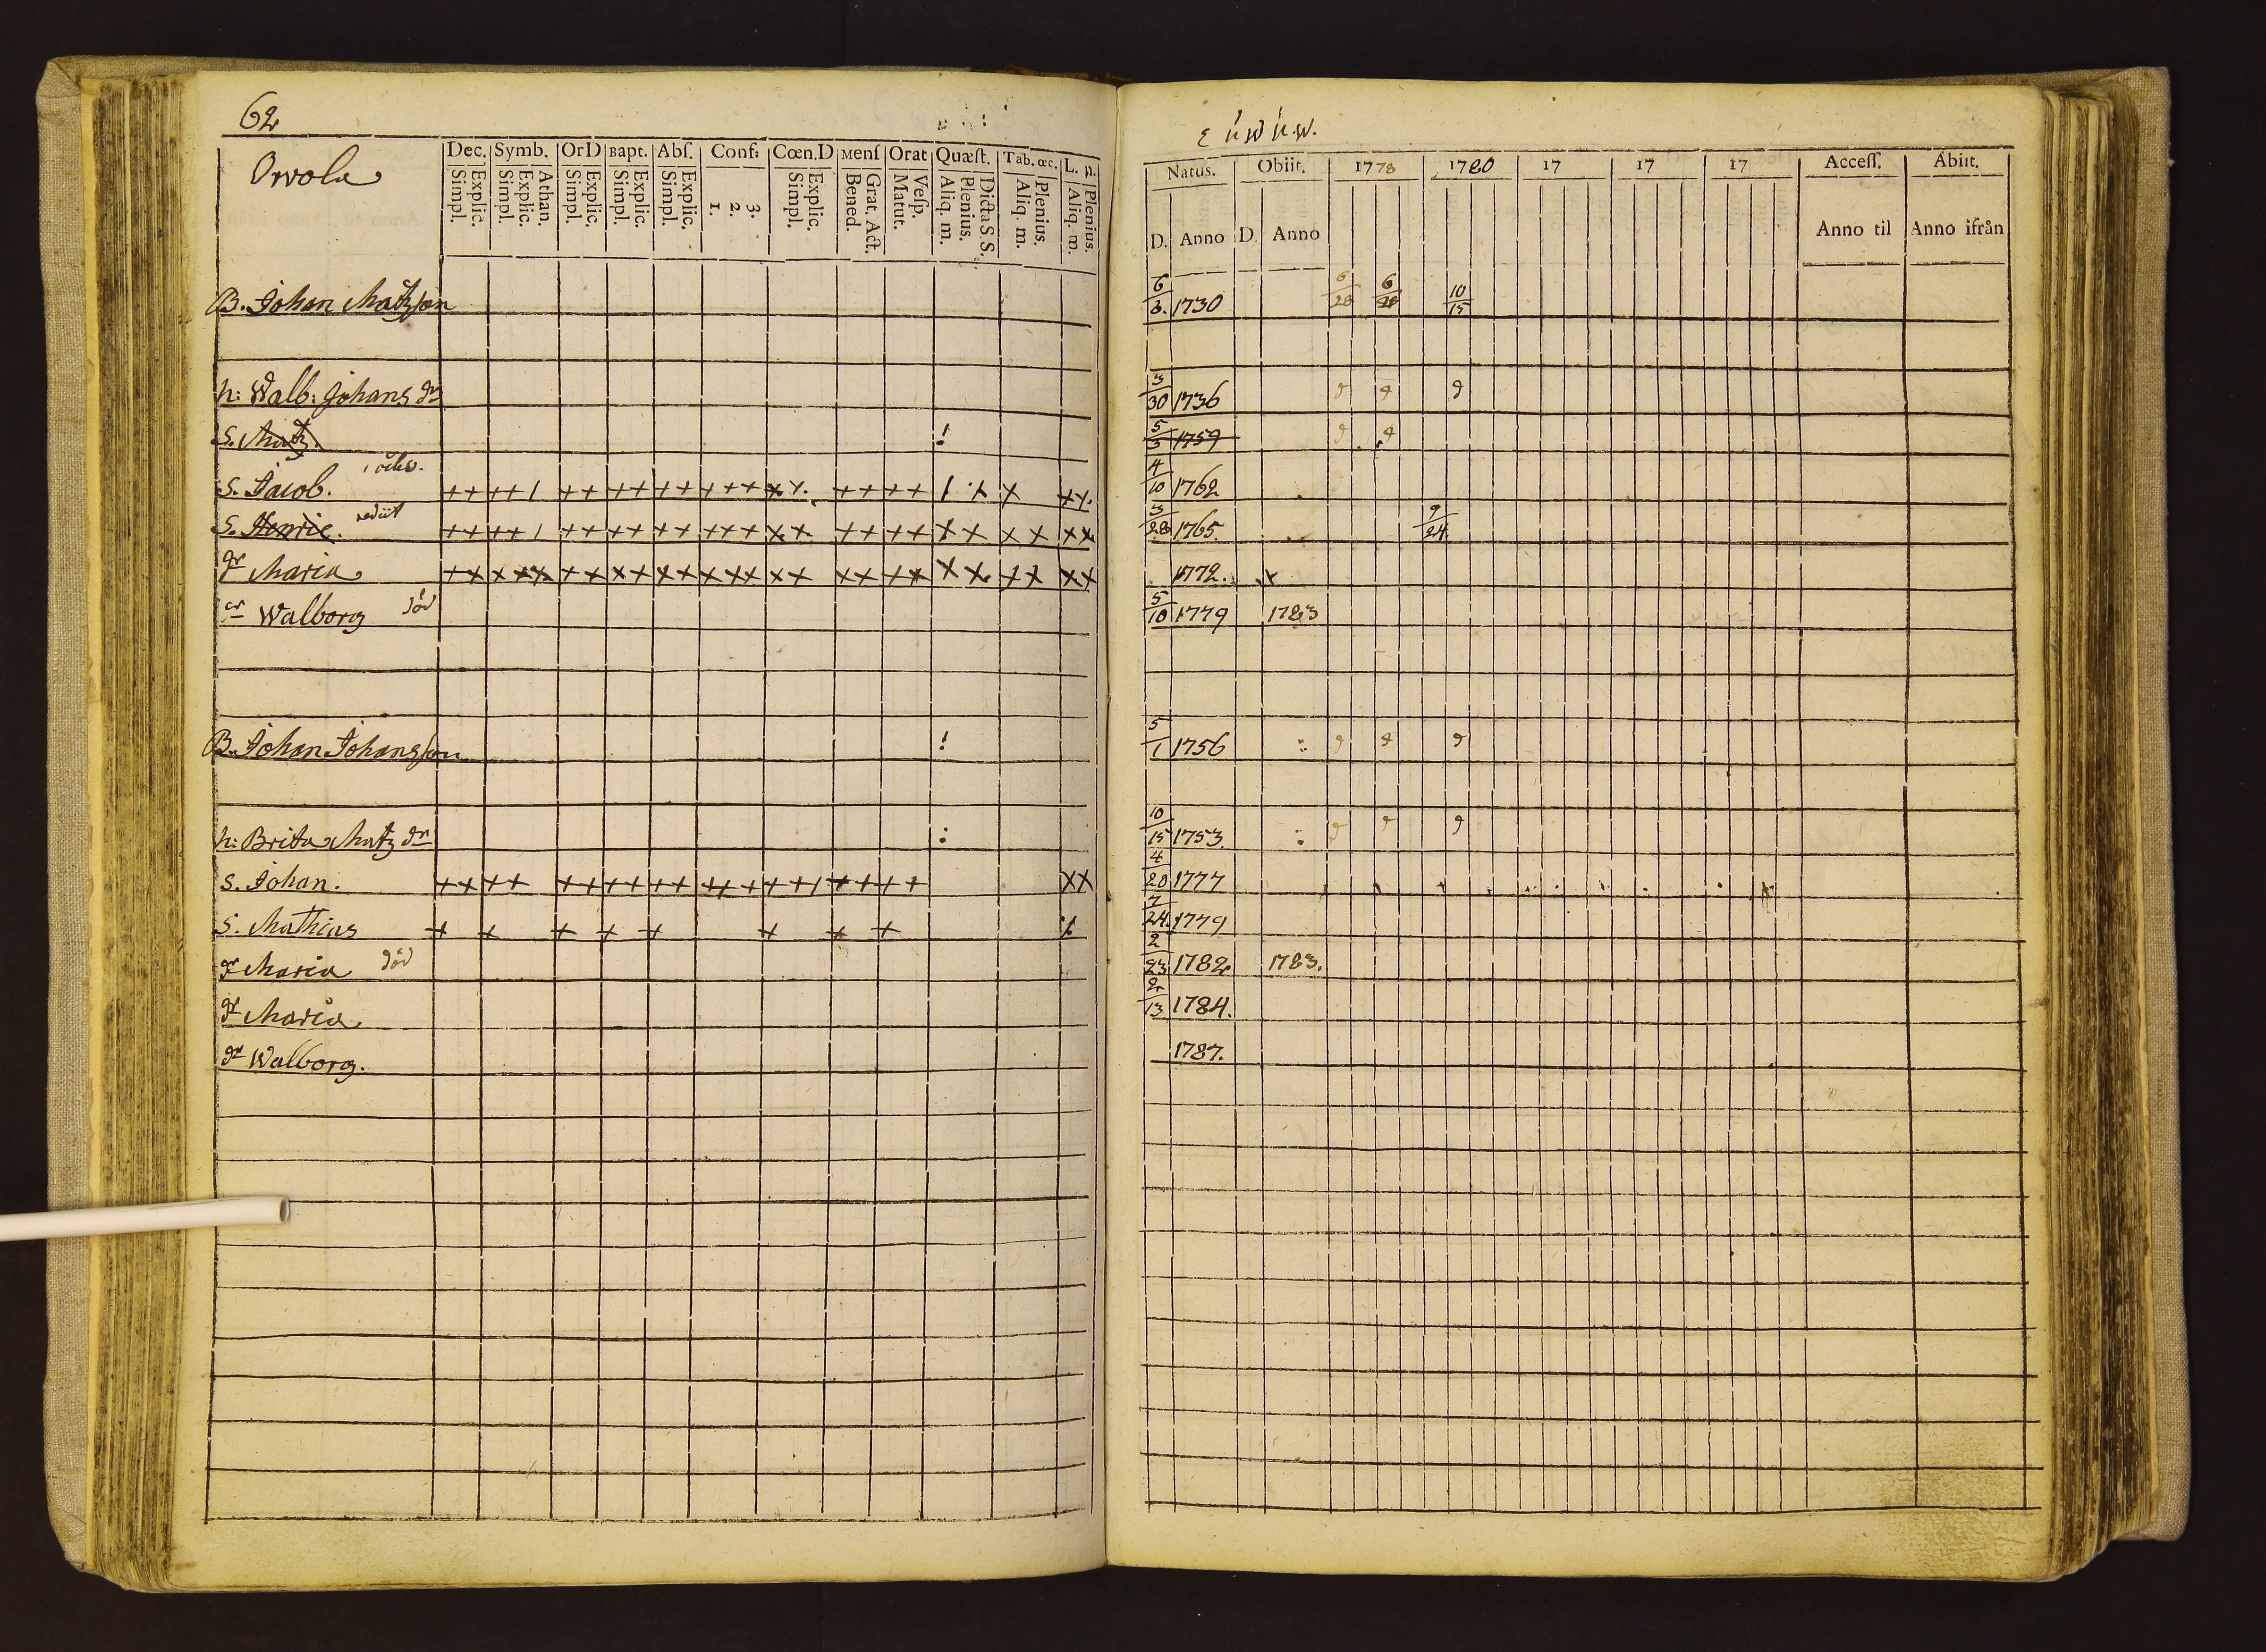 62
Dec. Symb. OrD Bapt. Abſ. Conf: Cœn.D Menſ Orat Quæſt. Tab. œc. L. n.
Orvola
Simpl. Explic. Simpl. Explic. Athan. Simpl. Explic. Simpl. Explic. Simpl. Explic. 1. 2. 3. Simpl. Explic. Bened. Grat. Act. Matut. Veſp. Aliq. m. Plenius. Dicta S S. Aliq. m. Plenius. Aliq. m. Plenius.
B. Johan Matzſon
h: Walb: Johans dr
S. Matz.
S. Jacob.
S. Henric. rediit
dr Maria
dr Walborg död
B. Johan Johansſon
h: Brita Matz dr
S. Johan.
S. Mathias
dr Maria död
dr Maria
dr Walborg.
Natus. Obiit. 1778 1780 17 17 17 Acceſſ. Abiit.
D. Anno D. Anno Anno til Anno ifrån
6/8. 1730 6/28 6/28 10/15
3/30 1736
5/5 1759
4/10 1762
3/28 1765. 9/24
1772.
5/10 1779 1783
5/1 1756
10/15 1753.
4/20 1777
7/24. 1779
2/23 1782 1783.
2/13 1784.
1787.